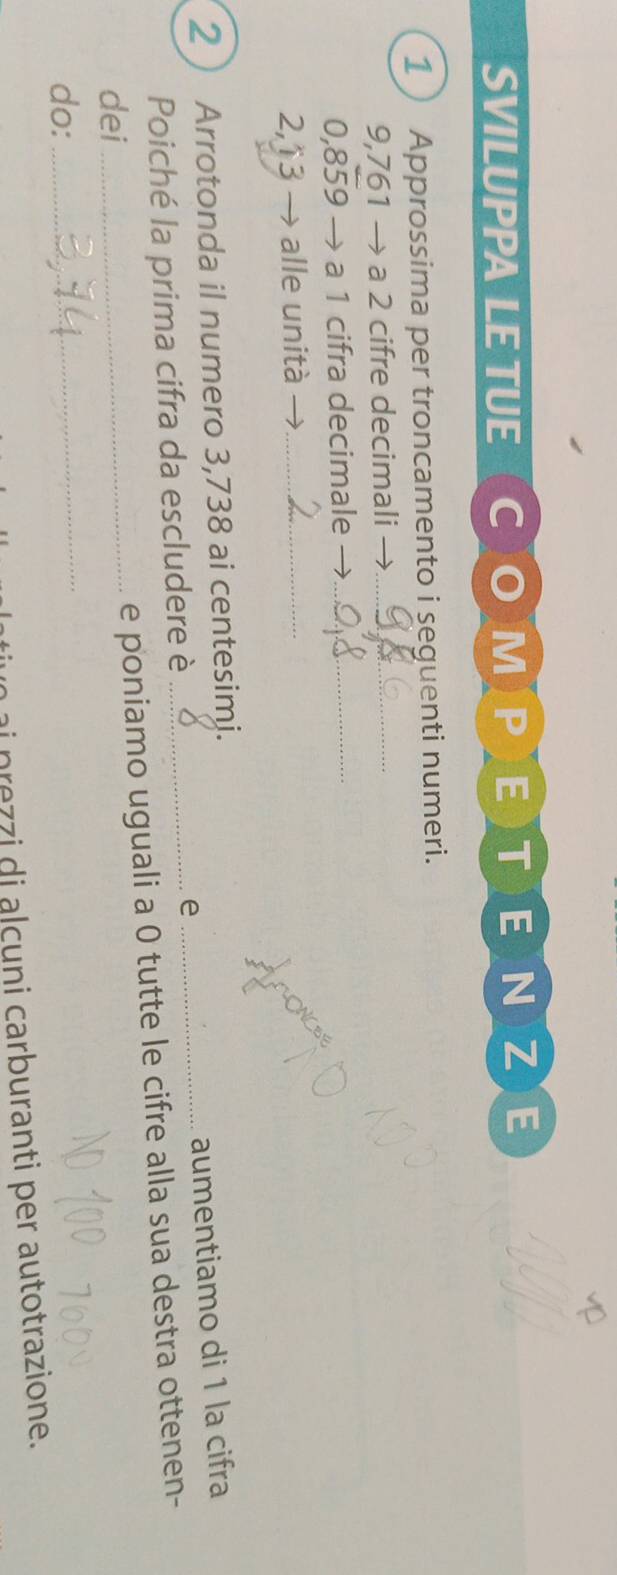 SVILUPPA LE TUE COMPETENZE
1 Approssima per troncamento i seguenti numeri.
9,761 → a 2 cifre decimali →
0,859 → a 1 cifra decimale → 0,8
2,13 → alle unità → 2
2 Arrotonda il numero 3,738 ai centesimi.
Poiché la prima cifra da escludere è 8 e aumentiamo di 1 la cifra
dei e poniamo uguali a 0 tutte le cifre alla sua destra ottenen-
do: 3,74
10 100 1000
ai prezzi di alcuni carburanti per autotrazione.